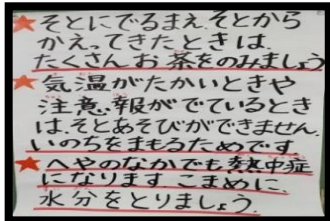 ★そとにでるまえ、そとから
かえってきたときは、
たくさんお茶をのみましょう
★気温がたかいときや
注意報がでているとき
は、そとあそびができません。
いのちをまもるためです。
★へやのなかでも熱中症
になります こまめに、
水分をとりましょう。